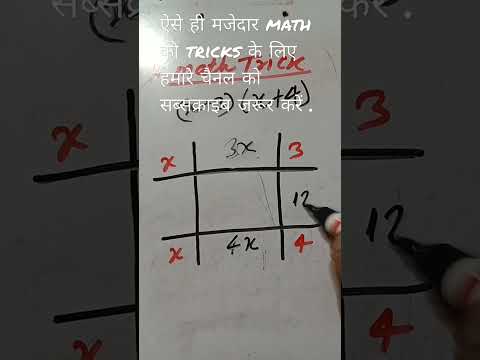 ऐसे ही मजेदार MATH
की TRICKS के लिए
हमारे चैनल को
सब्सक्राइब जरूर करें .
Math Trick
(x+4)
x 3x 3
12
x 4x 4
3
12
4